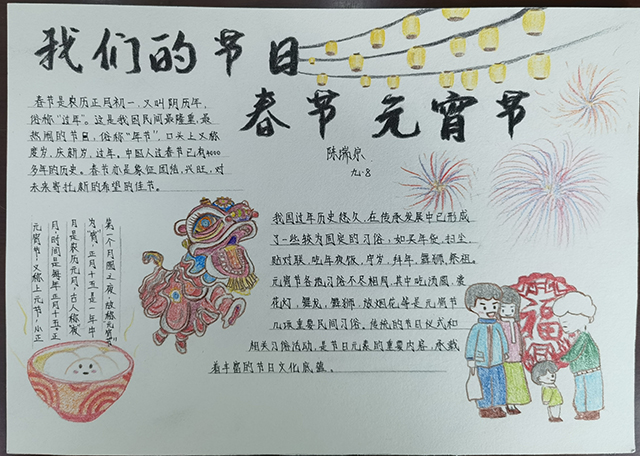 我们的节日
春节 元宵节
陈瑞
九.8
春节是农历正月初一,又叫阴历年,
俗称“过年”。这是我国民间最隆重,最
热闹的节日,俗称“年节”,口头上又称
度岁,庆新岁,过年。中国人过春节已有4000
多年的历史。春节亦是象征团结,兴旺,对
未来寄托新的希望的佳节。
我国过年历史悠久,在传承发展中已形成
了一些较为固定的习俗,如买年货,扫尘,
贴对联,吃年夜饭,守岁,拜年,舞狮,祭祖。
元宵节各地习俗不尽相同,其中吃汤圆,赏
花灯,舞龙,舞狮,放烟花,等是元宵节
几项重要民间习俗。传统的节日仪式和
相关习俗活动,是节日元素的重要内容,承载
着丰富的节日文化底蕴。
元宵节,又称上元节,小正
月,时间是每年正月十五。正
月是农历元月,古人称“夜”
为“宵”,正月十五是一年中
第一个月圆之夜,故称元宵节
福